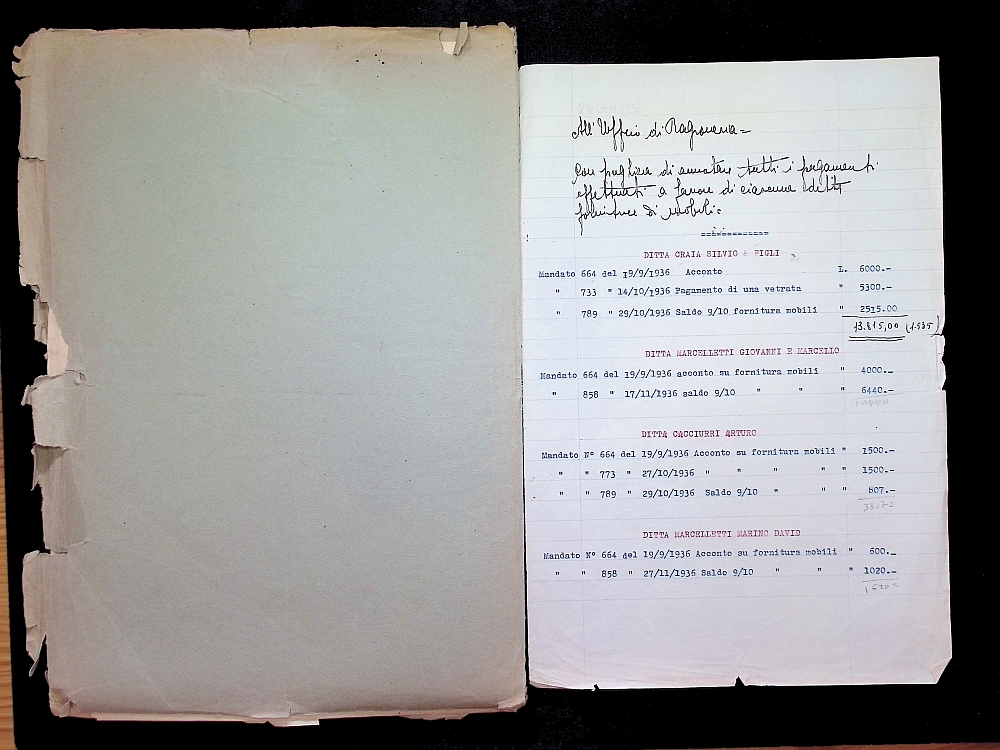 All'Ufficio di Ragioneria=
con preghiera di annotare tutti i pagamenti
effettuati a favore di ciascuna ditta
fornitrice di mobili=
DITTA CRAIA SILVIO & FIGLI
Mandato 664 del 19/9/1936 Acconto L. 6000.-
" 733 " 14/10/1936 Pagamento di una vetrata " 5300.-
" 789 " 29/10/1936 Saldo 9/10 fornitura mobili " 2515.00
13.815,00 (1.535)
DITTA MARCELLETTI GIOVANNI E MARCELLO
Mandato 664 del 19/9/1936 acconto su fornitura mobili " 4000.-
" 858 " 17/11/1936 saldo 9/10 " " " 6440.-
10440
DITTA CACCIURRI ARTURO
Mandato N° 664 del 19/9/1936 Acconto su fornitura mobili " 1500.-
" " 773 " 27/10/1936 " " " " " 1500.-
" " 789 " 29/10/1936 Saldo 9/10 " " " 807.-
3807=
DITTA MARCELLETTI MARINO DAVID
Mandato N° 664 del 19/9/1936 Acconto su fornitura mobili " 600._
" " 858 " 27/11/1936 Saldo 9/10 " " " 1020.-
1620=